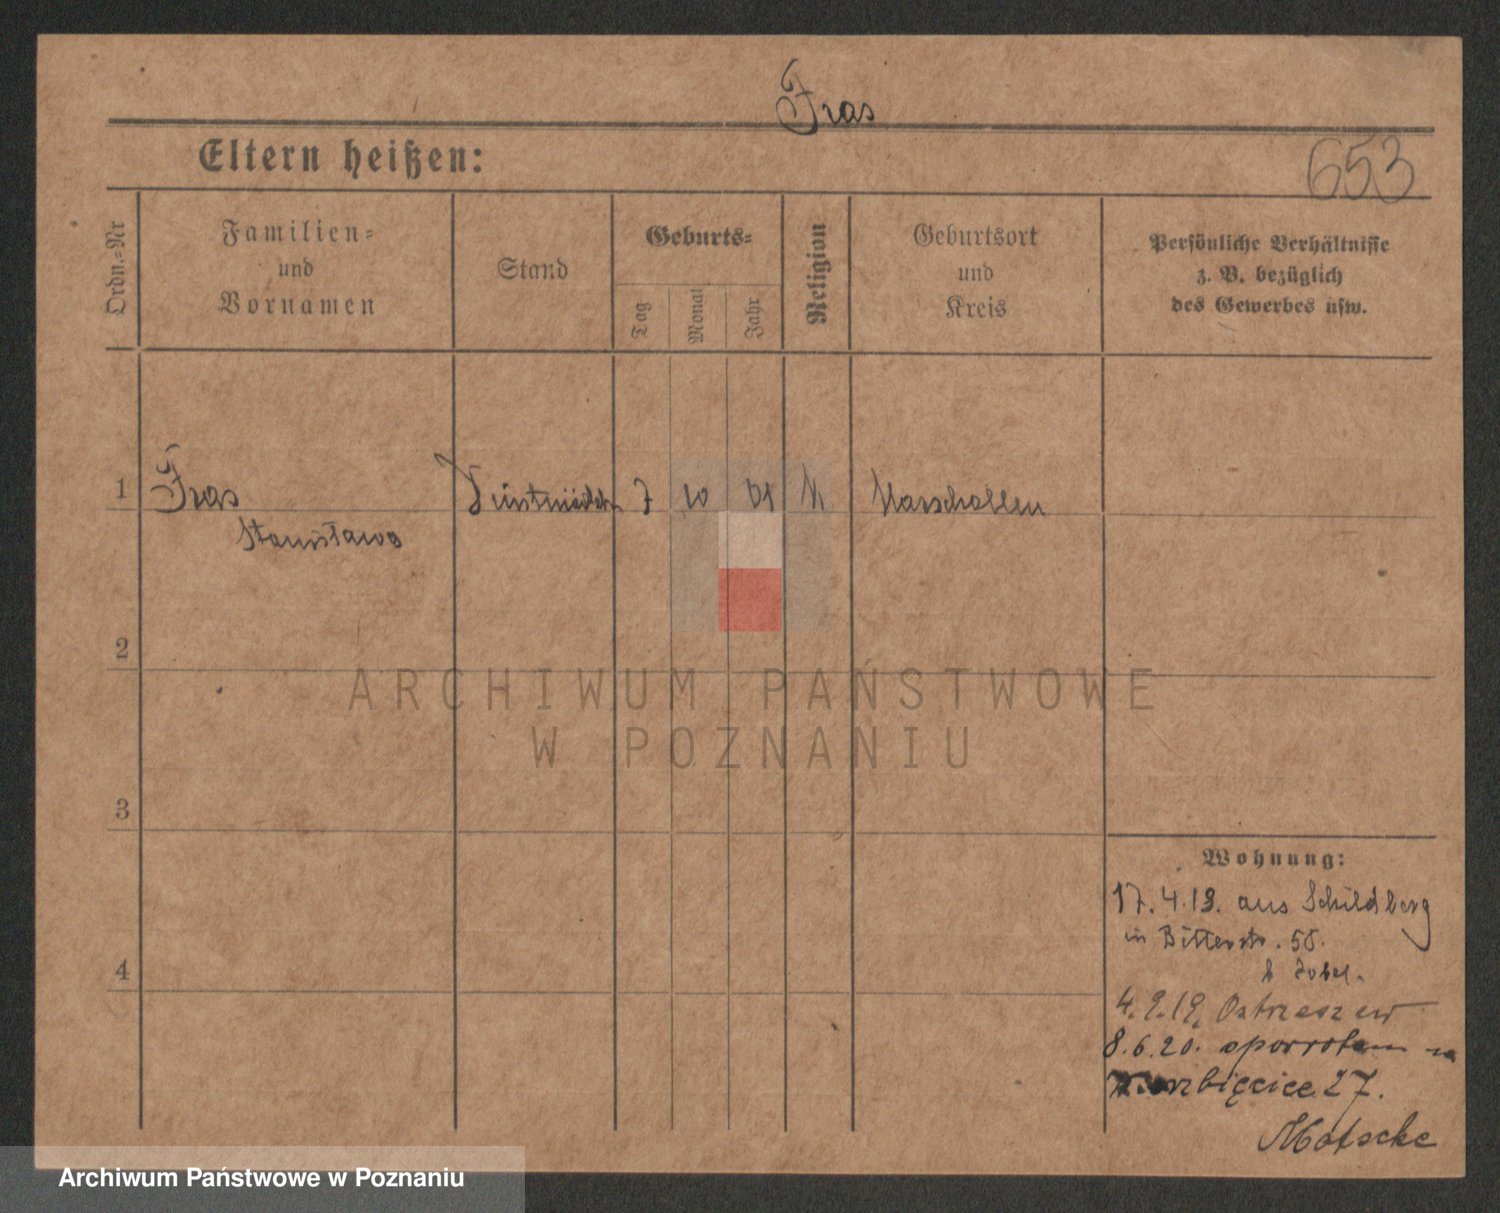 Fras
Eltern heißen:
653
Ordn.-Nr
Familien-
und
Vornamen
Stand
Geburts-
Tag
Monat
Jahr
Religion
Geburtsort
und
Kreis
Persönliche Verhältnisse
z. B. bezüglich
des Gewerbes usw.
1
Fras
Stanisława
7
10
01
2
3
4
Wohnung:
17.4.19. aus Schildberg
in Bitterstr. 58.
4.9.19. Ostrzeszew
8.6.20. spowrotem na
27.
Motschke
ARCHIWUM PAŃSTWOWE
W POZNANIU
Archiwum Państwowe w Poznaniu